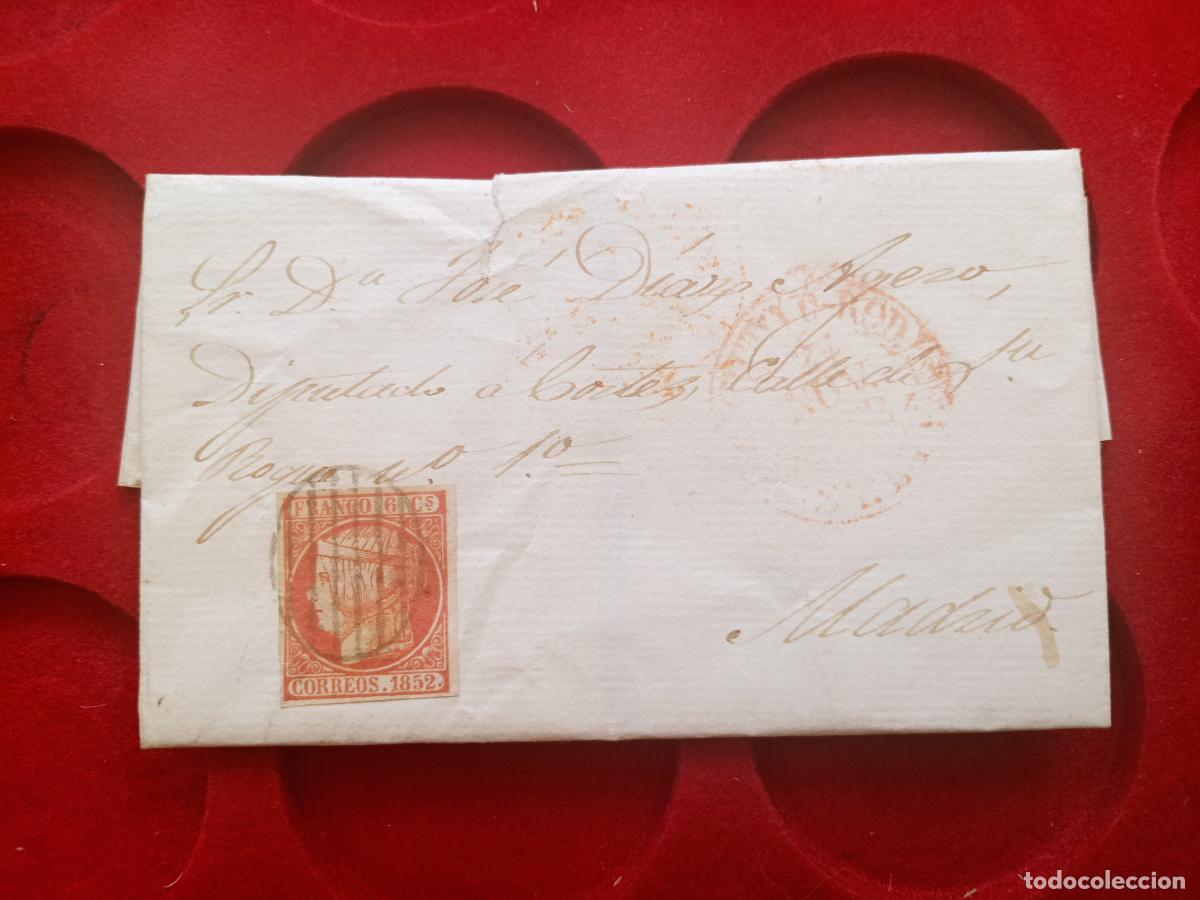 Sr. Dⁿ José Díaz Agero,
Diputado a Cortes, Calle de Sⁿ
Roque nº 1º
Madrid.
FRANCO 6 Cs
CORREOS. 1852.
todocoleccion